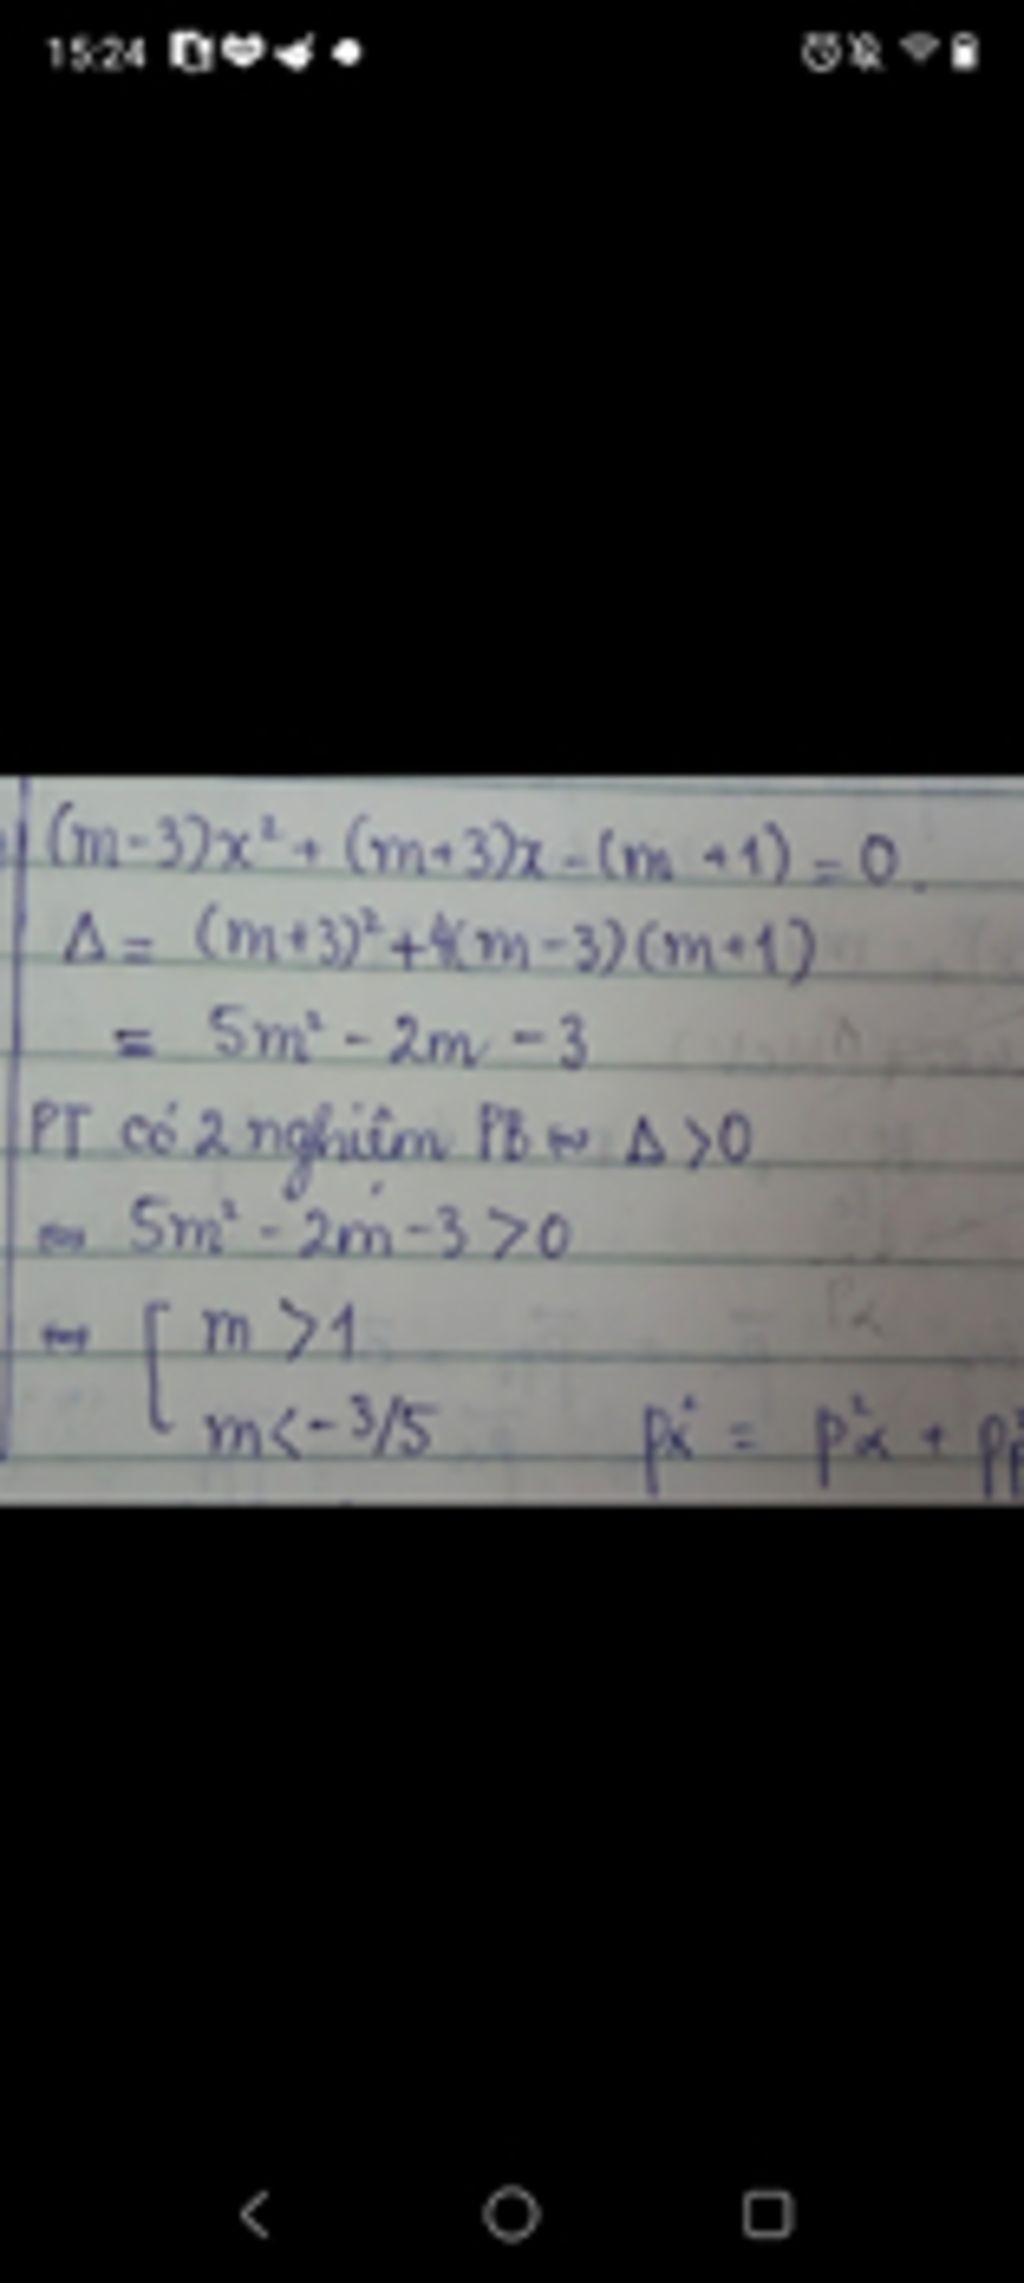 15:24
(m-3)x² + (m+3)x - (m +1) = 0
Δ = (m+3)² + 4(m-3)(m+1)
= 5m² - 2m - 3
PT có 2 nghiệm PB ⇔ Δ > 0
⇔ 5m² - 2m - 3 > 0
⇔ [ m > 1
m < -3/5